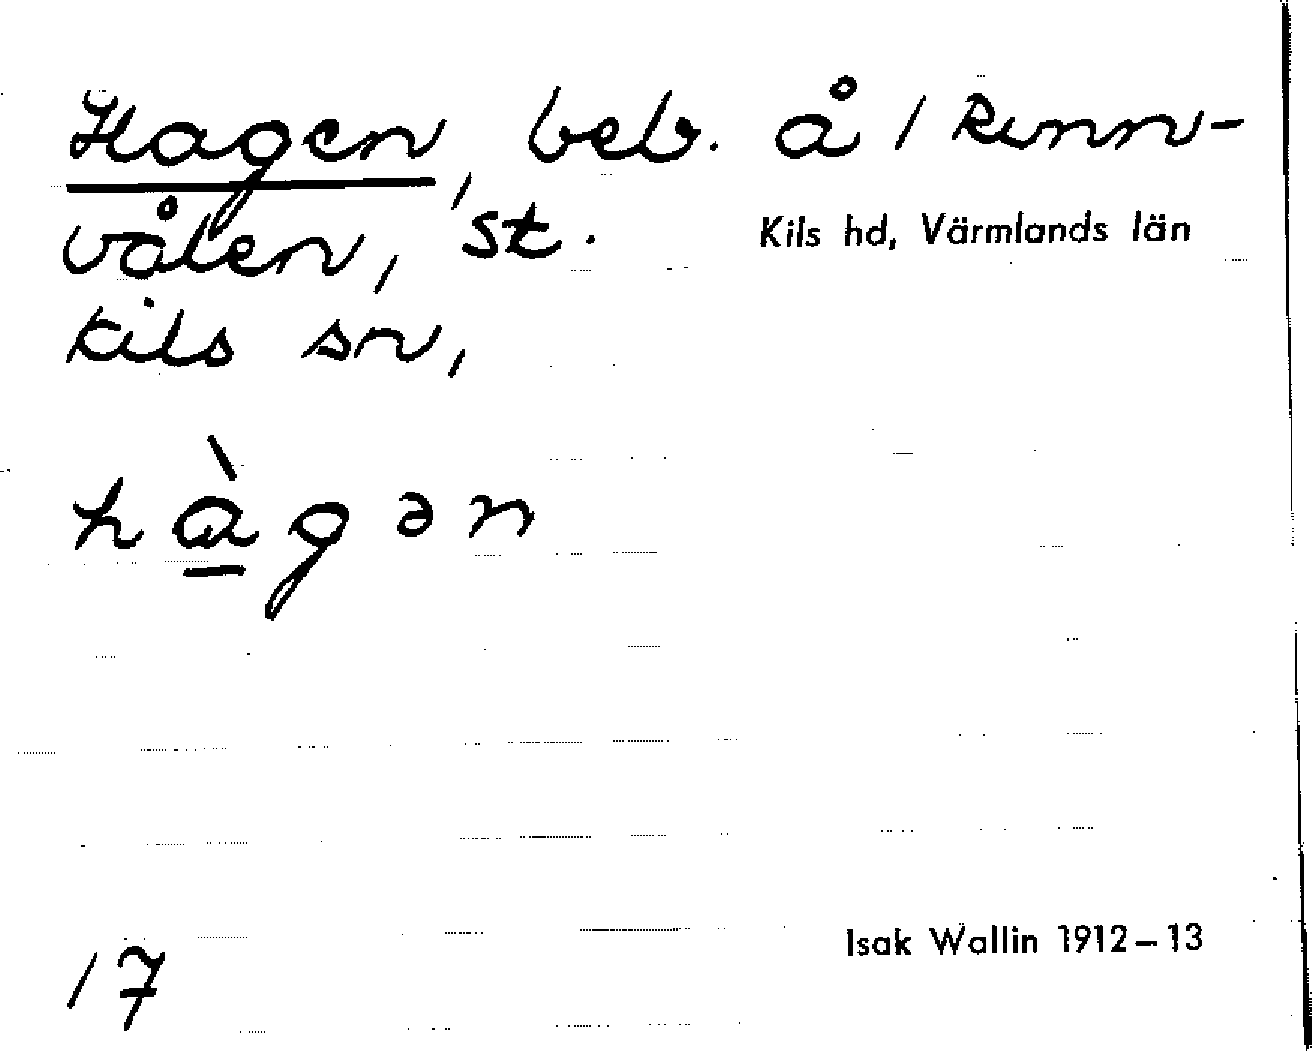 Hagen, beb. å 1 Runn-
vålen, St.
Kils hd, Värmlands län
Kils sn,
hàgən
17
Isak Wallin 1912–13